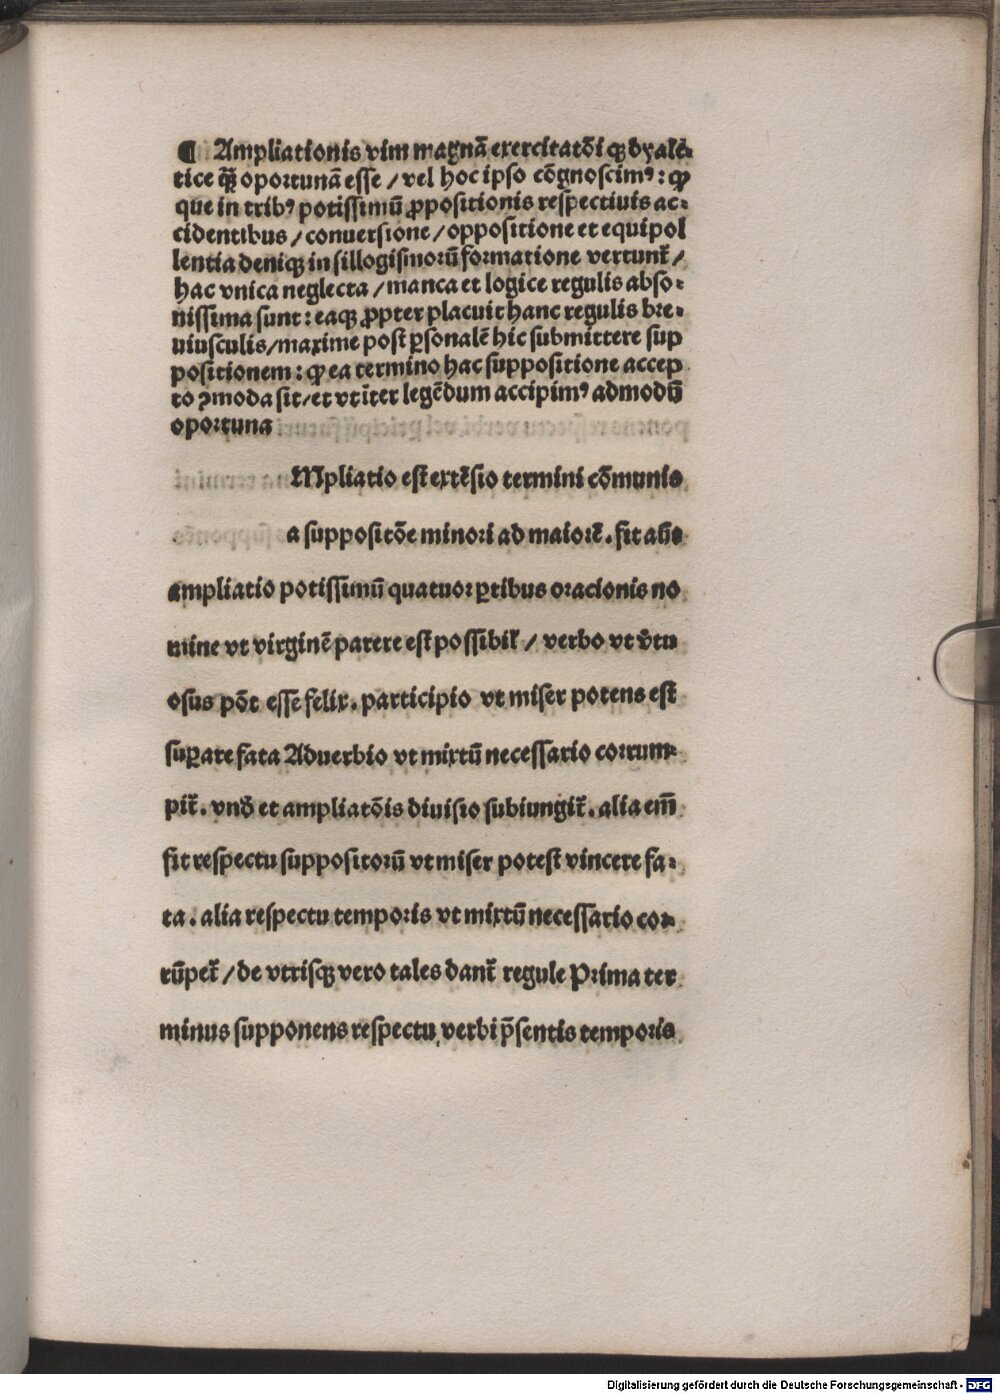 ¶ Ampliationis vim magnā exercitatōi qꝫ dyalē⸗
tice qꝫ̄ oportunā esse / vel hoc ipso cōgnoscimꝰ : ꝙ
que in tribꝰ potissimū ꝓpositionis respectiuis ac⸗
cidentibus / conuersione / oppositione et equipol
lentia deniqꝫ in sillogismorū formatione vertunt̄ /
hac vnica neglecta / manca et logice regulis abso⸗
nissima sunt : eaqꝫ ꝓpter placuit hanc regulis bre⸗
uiusculis / maxime post ꝑsonalē hic submittere sup
positionem : ꝙ ea termino hac suppositione accep
to ꝯmoda sit / et vt īter legēdum accipimꝰ admodū
oportuna
Mpliatio est extēsio termini cōmunis
a suppositōe minori ad maiorē . fit aūt
ampliatio potissimū quatuor ꝑtibus oracionis no
mine vt virginē parere est possibil̄ / verbo vt v̄tu
osus pōt esse felix . participio vt miser potens est
suꝑare fata Aduerbio vt mixtū necessario corrum⸗
pit̄ . vnd̄ et ampliatōis diuisio subiungit̄ . alia em̄
fit respectu suppositorū vt miser potest vincere fa⸗
ta . alia respectu temporis vt mixtū necessario cor⸗
rūpet̄ / de vtrisqꝫ vero tales dant̄ regule Prima ter
minus supponens respectu verbi p̄sentis temporis
Digitalisierung gefördert durch die Deutsche Forschungsgemeinschaft - DFG